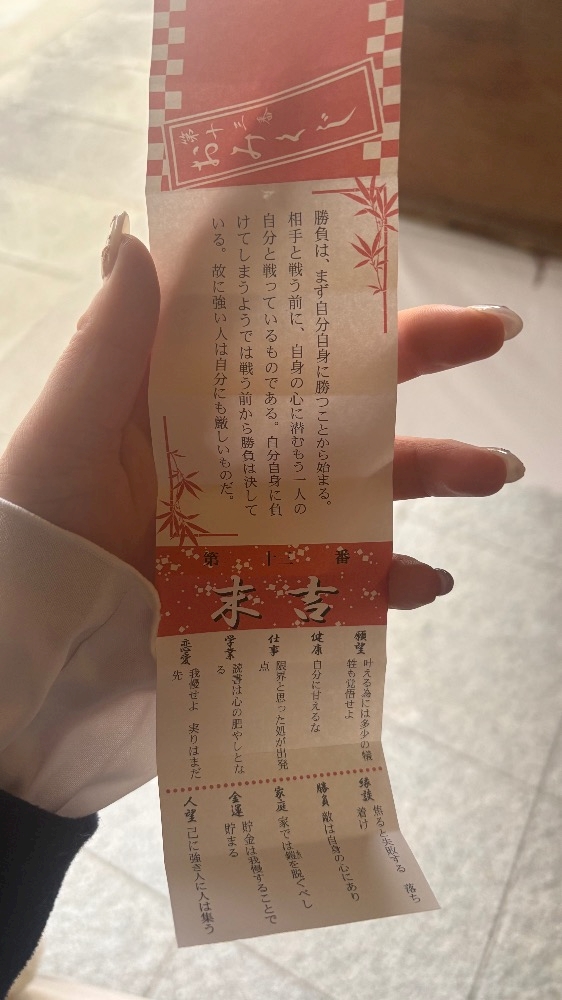 第十三番
おみくじ
勝負は、まず自分自身に勝つことから始まる。
相手と戦う前に、自身の心に潜むもう一人の
自分と戦っているものである。自分自身に負
けてしまうようでは戦う前から勝負は決して
いる。故に強い人は自分にも厳しいものだ。
第十三番
末吉
願望
叶える為には多少の犠
牲も覚悟せよ
健康
自分に甘えるな
仕事
限界と思った処が出発
点
学業
読書は心の肥やしとな
る
恋愛
我慢せよ 実りはまだ
先
縁談
焦ると失敗する 落ち
着け
勝負
敵は自身の心にあり
家庭
家では鎧を脱ぐべし
金運
貯金は我慢することで
貯まる
人望
己に強き人に人は集う